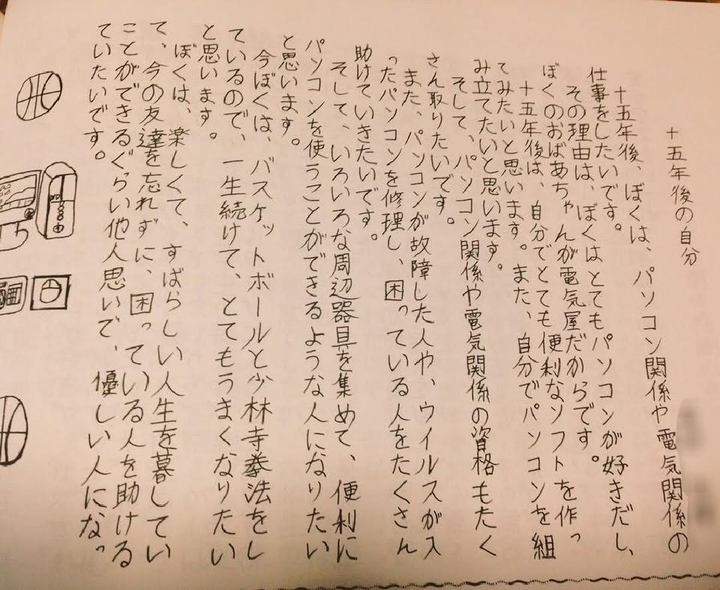 十五年後の自分
十五年後、ぼくは、パソコン関係や電気関係の
仕事をしたいです。
その理由は、ぼくはとてもパソコンが好きだし、
ぼくのおばあちゃんが電気屋だからです。
十五年後は、自分でとても便利なソフトを作っ
てみたいと思います。また、自分でパソコンを組
み立てたいと思います。
そして、パソコン関係や電気関係の資格もたく
さん取りたいです。
また、パソコンが故障した人や、ウイルスが入
ったパソコンを修理し、困っている人をたくさん
助けていきたいです。
そして、いろいろな周辺器具を集めて、便利に
パソコンを使うことができるような人になりたい
と思います。
今ぼくは、バスケットボールと少林寺拳法をし
ているので、一生続けて、とてもうまくなりたい
と思います。
ぼくは、楽しくて、すばらしい人生を暮してい
て、今の友達を忘れずに、困っている人を助ける
ことができるぐらい他人思いで、優しい人になっ
ていたいです。